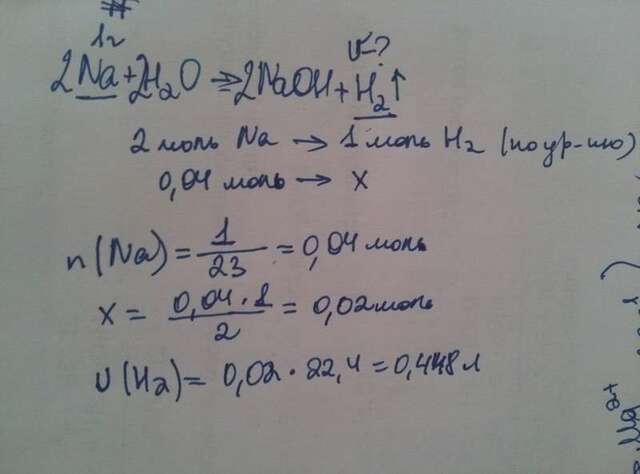 1г V-?
2Na+2H₂O ⇒ 2NaOH + H₂↑
2 моль Na → 1 моль H₂ (по ур-ию)
0,04 моль → x
n(Na) = 1/23 = 0,04 моль
x = 0,04 · 1/2 = 0,02 моль
V(H₂) = 0,02 · 22,4 = 0,448 л